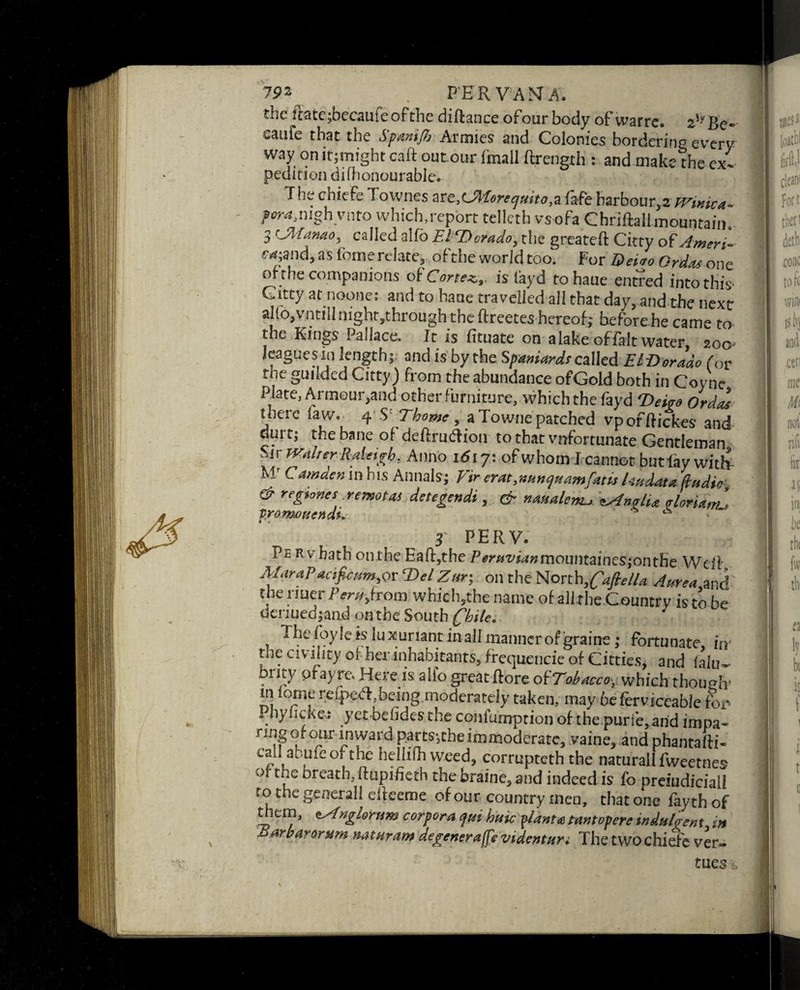 792 PERVANA.
the ſtate;becauſe of the diſtance of our body of warre. 2ly Be-
cauſe that the Spaniſh Armies and Colonies bordering every
way on it;might caſt out our ſmall ſtrength : and make the ex-
pedition diſhonourable.
The chiefe Townes are,Morequito,a ſafe harbour,2 Winica-
pora,nigh vnto which,report telleth vs of a Chriſtall mountain.
3 Manao, called alſo El Dorado, the greateſt Citty of Ameri-
ca;and, as ſome relate, of the world too. For Deigo Ordas one
of the companions of Cortez, is ſayd to haue entred into this
Citty at noone: and to haue travelled all that day, and the next
alſo,vntill night,through the ſtreetes hereof; before he came to
the Kings Pallace. It is ſituate on a lake of ſalt water, 200
leagues in length; and is by the Spaniards called El Dorado (or
the guilded Citty) from the abundance of Gold both in Coyne,
Plate, Armour,and other furniture, which the ſayd Deigo Ordas
there ſaw. 4 St Thome, a Towne patched vp of ſtickes and
durt; the bane of deſtruction to that vnfortunate Gentleman,
Sir Walter Raleigh, Anno 1617: of whom I cannot but ſay with
Mr Camden in his Annals; Vir erat,nunquam ſatis laudata ſtudio,
& regiones remotas detegendi, & naualem Angliæ gloriam
promouendi.
3 PERV.
PERV hath on the Eaſt,the Peruvian mountaines;on the Weſt,
Mara Pacificum,or Del Zur; on the North,Caſtella Aurea,and
the riuer Peru,from which,the name of all the Country is to be
deriued;and on the South Chile.
The ſoyle is luxuriant in all manner of graine; fortunate, in
the civility of her inhabitants, frequencie of Citties, and ſalu-
brity of ayre. Here is alſo great ſtore of Tobacco, which though
in ſome reſpect,being moderately taken, may be ſerviceable for
Phyſicke: yet beſides the conſumption of the purſe,and impa-
ring of our inward parts;the immoderate, vaine, and phantaſti-
call abuſe of the helliſh weed, corrupteth the naturall ſweetnes
of the breath, ſtupifieth the braine, and indeed is ſo preiudiciall
to the generall eſteeme of our country men, that one ſayth of
them, Anglorum corpora qui huic plantæ tantopere indulgent,in
Barbarorum naturam degeneraſſe videntur. The two chiefe ver-
tues